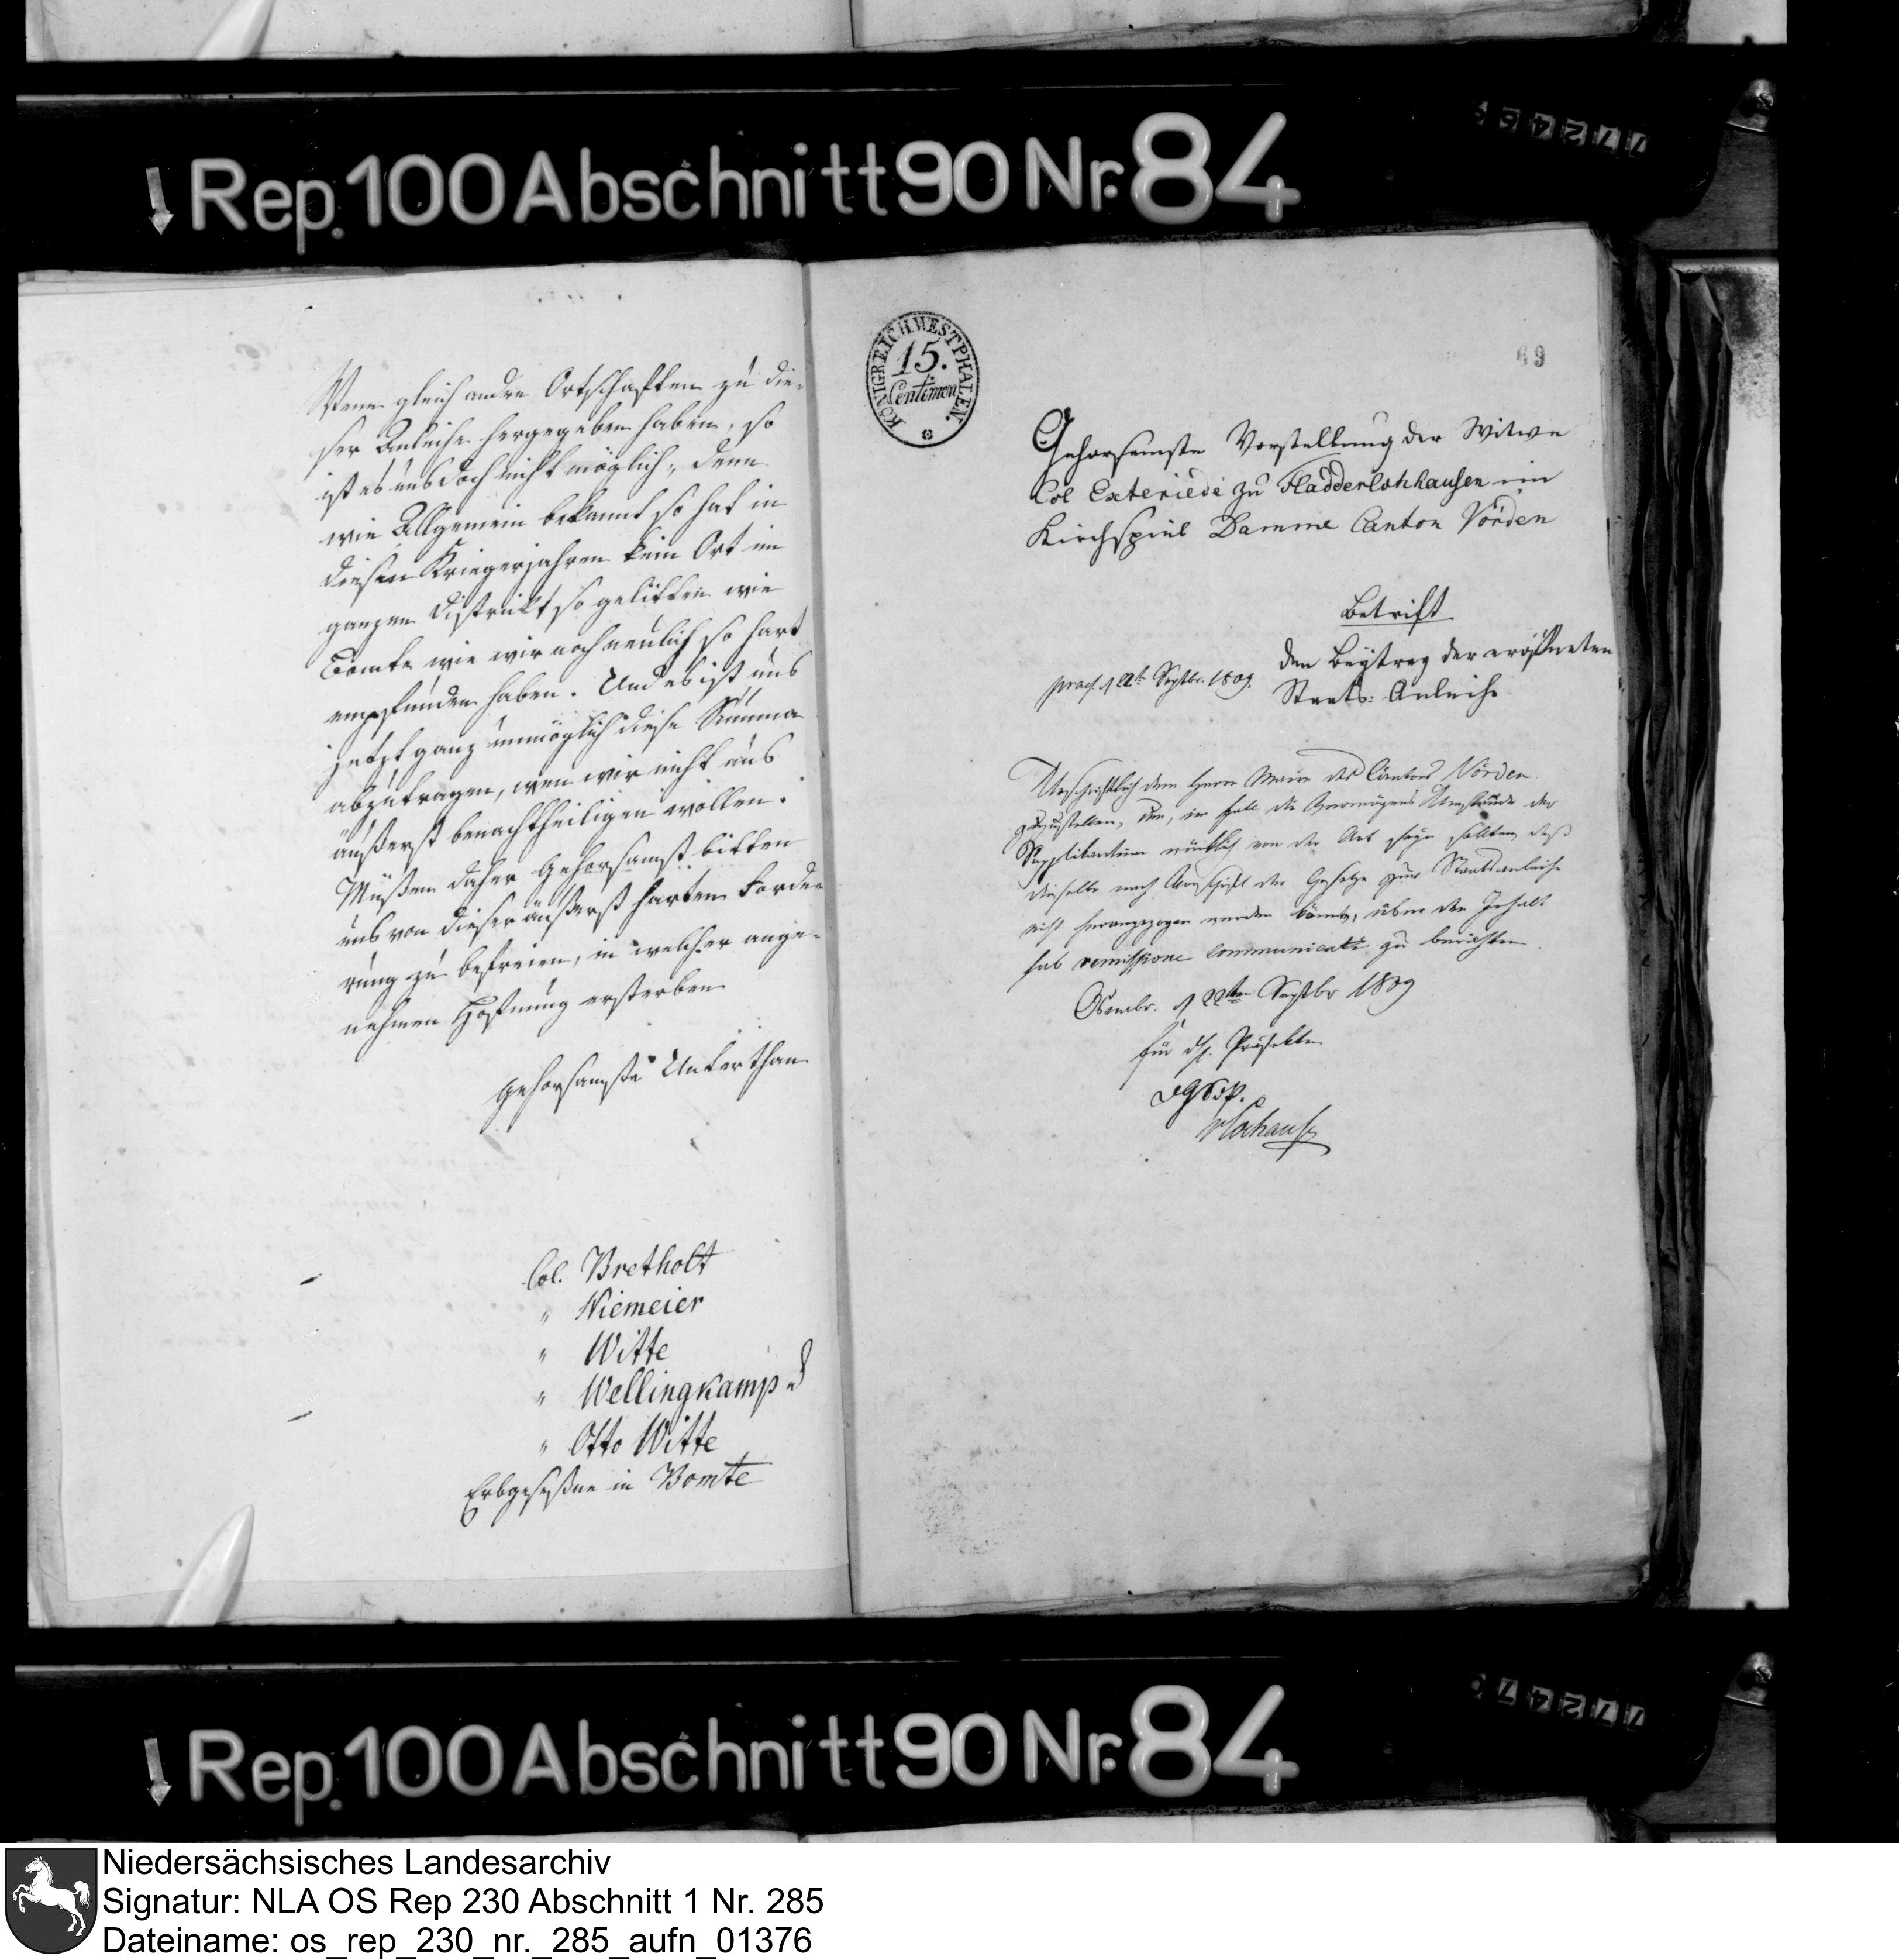 77246
Rep. 100 Abschnitt 90 Nr. 84
Wenn gleich andre Ortschaften zu die-
ser Anleihe hergegeben haben, so
ist es uns doch nicht möglich, denn
wie Allgemein bekannt so hat in
diesen Kriegerjahren kein Ort im
ganzen Distrikt so gelitten wie
Bomte wie wir noch neulich so hart
empfunden haben. Und es ist uns
jetzt ganz unmöglich diese Summa
abzutragen, wen wir nicht uns
äußerst benachtheiligen wollen.
Müßen daher Gehorsamst bitten
uns von dieser äußerst harten Forde-
rung zu befreien, in welcher ange-
nehmen Hofnung ersterben
gehorsamste Unterthan
Col. Bretholt
" Niemeier
" Witte
" Wellingkamp
" Otto Witte
Erbgeseßne in Bomte
KÖNIGREICH WESTPHALEN.
15.
Centimen
69
Gehorsamste Vorstellung der Witwe
Col Exteriede zu Fladderlohhausen im
Kirchspiel Damme Canton Vörden
Betrift
den Beytrag der eröffneten
Staats: Anleihe
praes. d 22t Septbr. 1809.
Urschriftlich dem Herrn Maire des Cantons Vörden
zuzustellen, um, im Fall die Vermögens Umstände der
Supplikantinn würklich von der Art seyn sollten, daß
dieselbe nach Vorschrift der Gesetze zur Staatsanleihe
nicht herangezogen werden könnte, über den Inhalt
sub remissione communicati zu berichten.
Osnabr. d 22ten Septbr 1809
Für d. Präfekten
Rep. 100 Abschnitt 90 Nr. 84
77247
Niedersächsisches Landesarchiv
Signatur: NLA OS Rep 230 Abschnitt 1 Nr. 285
Dateiname: os_rep_230_nr._285_aufn_01376